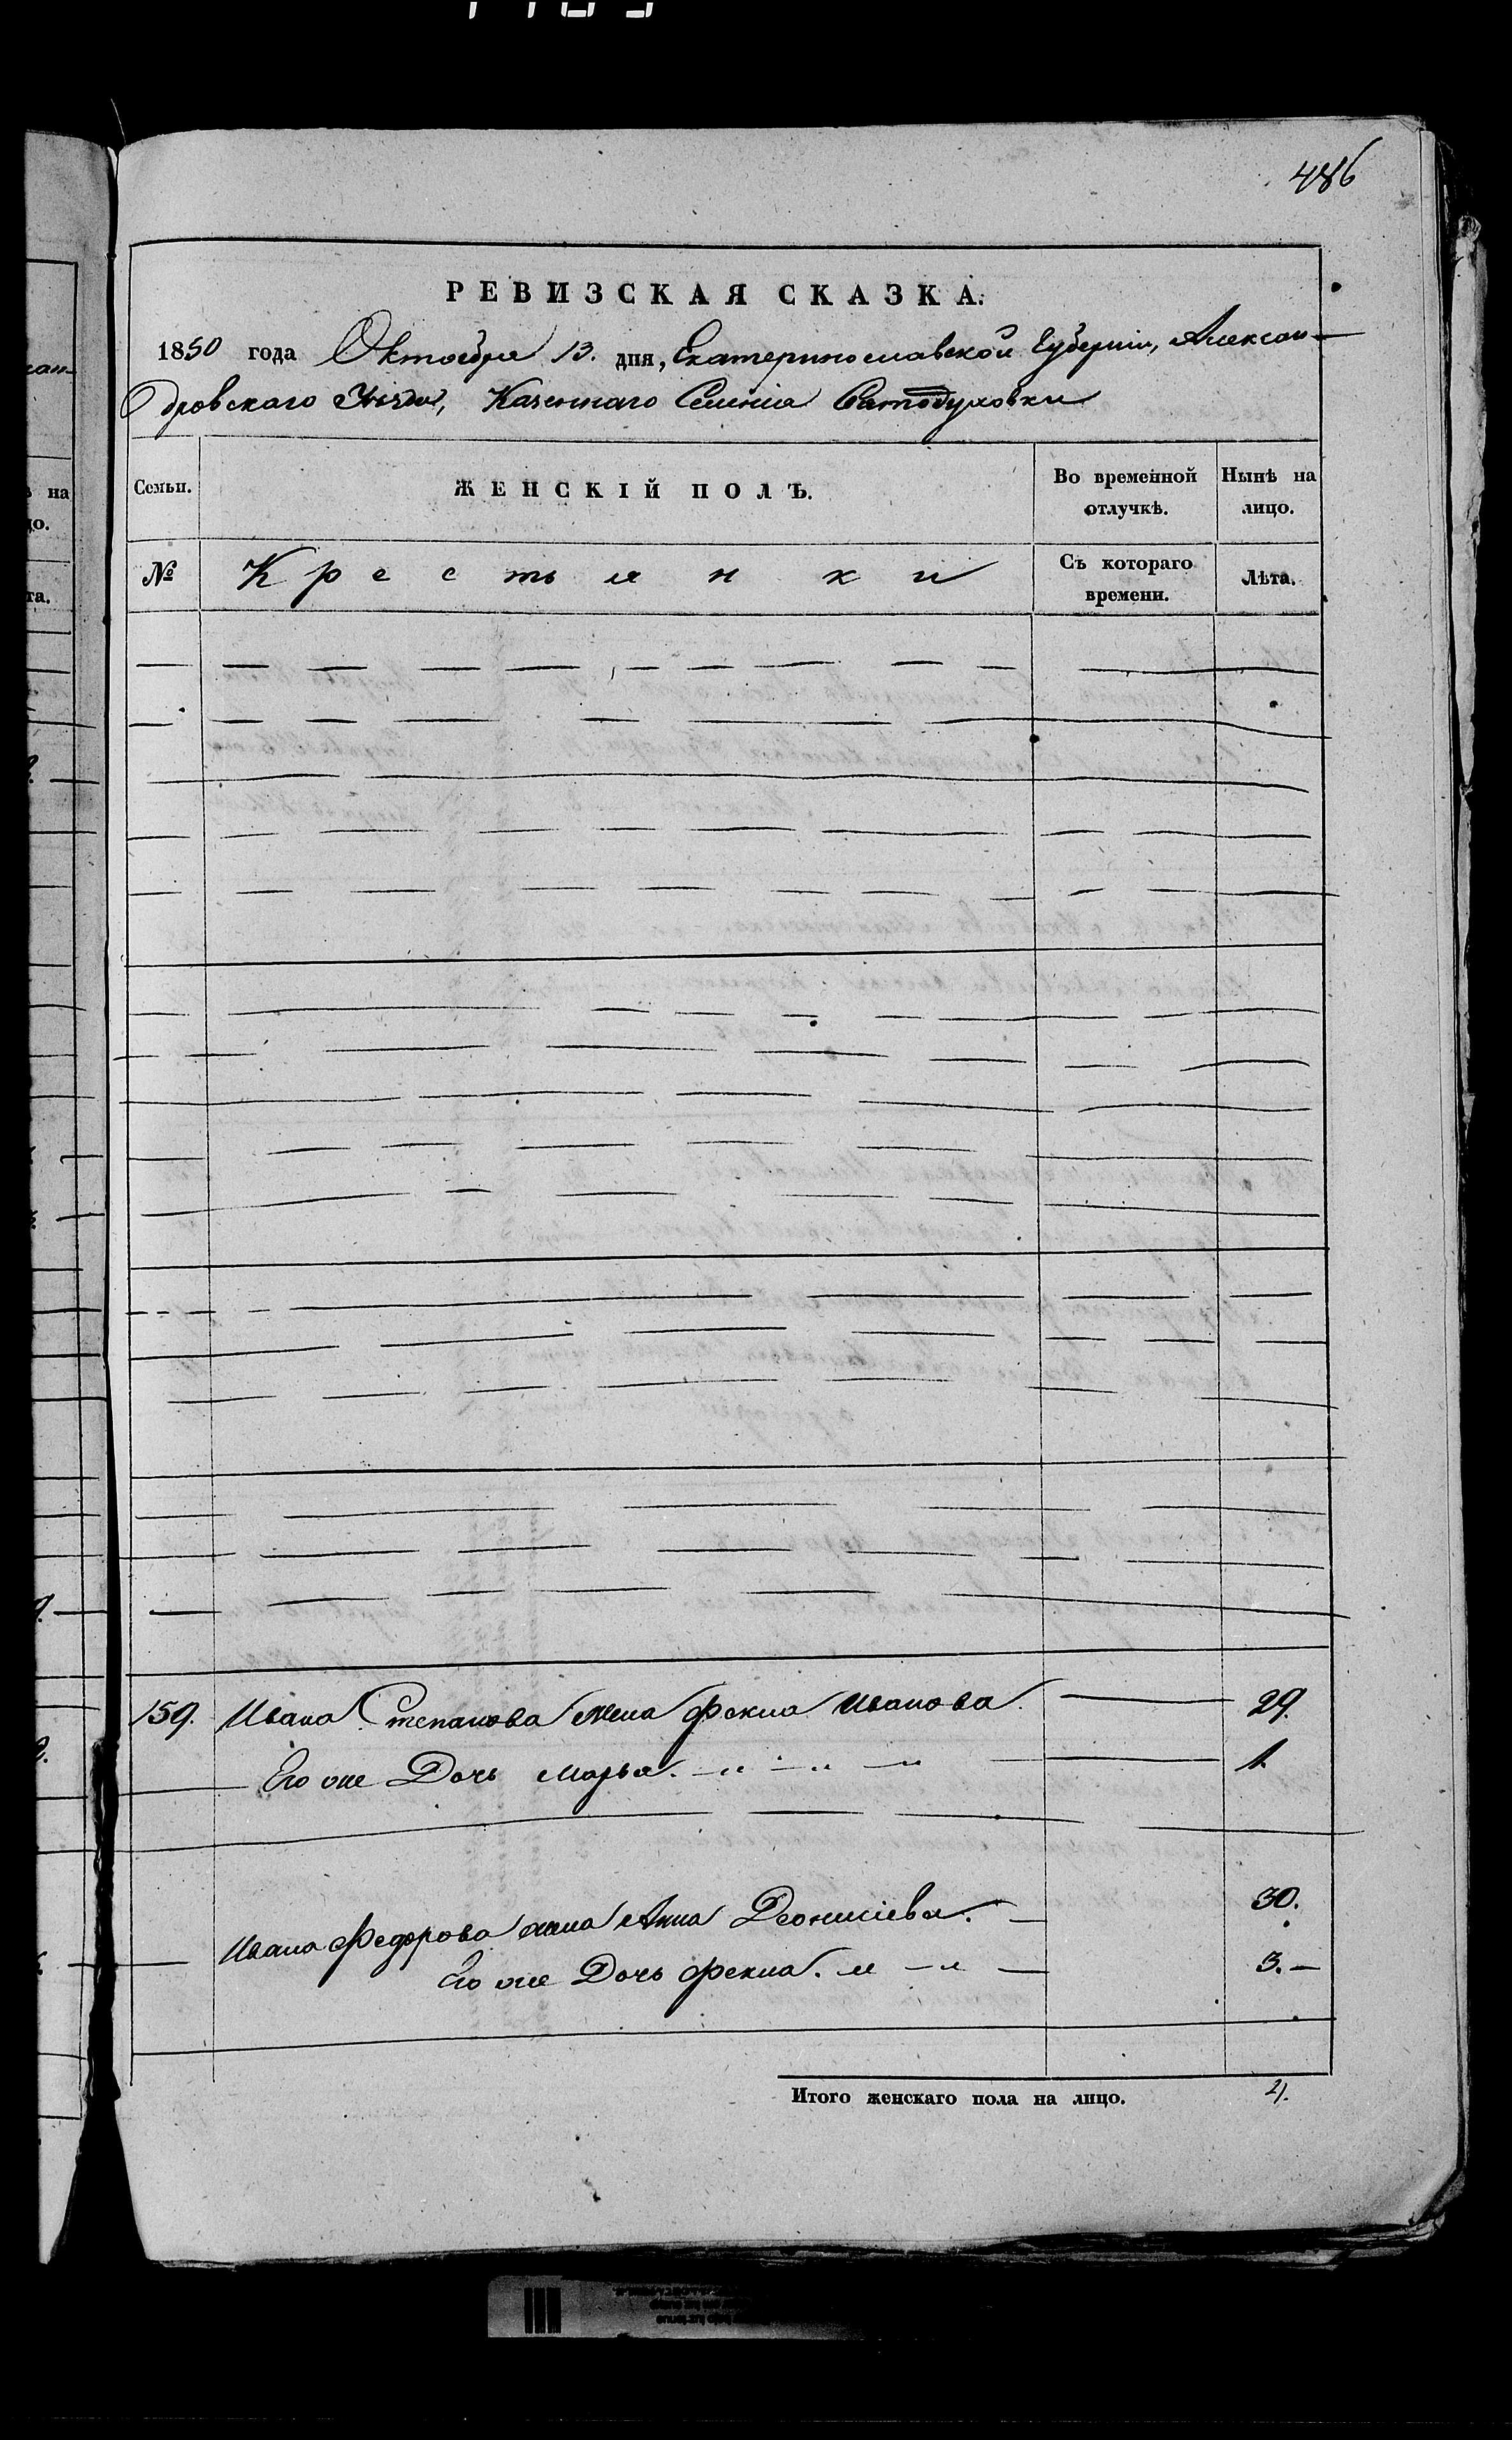 486
РЕВИЗСКАЯ СКАЗКА.
1850 года Октября 13. дня, Екатеринославской Губерніи, Алексан-
дровскаго Уѣзда, Казеннаго Селенія Святодуховки
Семьи. ЖЕНСКІЙ ПОЛЪ. Во временной отлучкѣ. Нынѣ на лицо.
№ Крестьянки Съ котораго времени. Лѣта.
159. Ивана Степанова жена Фекла Иванова. 29.
Его же Дочь Марья. 1.
Ивана Федорова жена Анна Деонисіева. 30.
Его же Дочь Фекла. 3.
Итого женскаго пола на лицо.